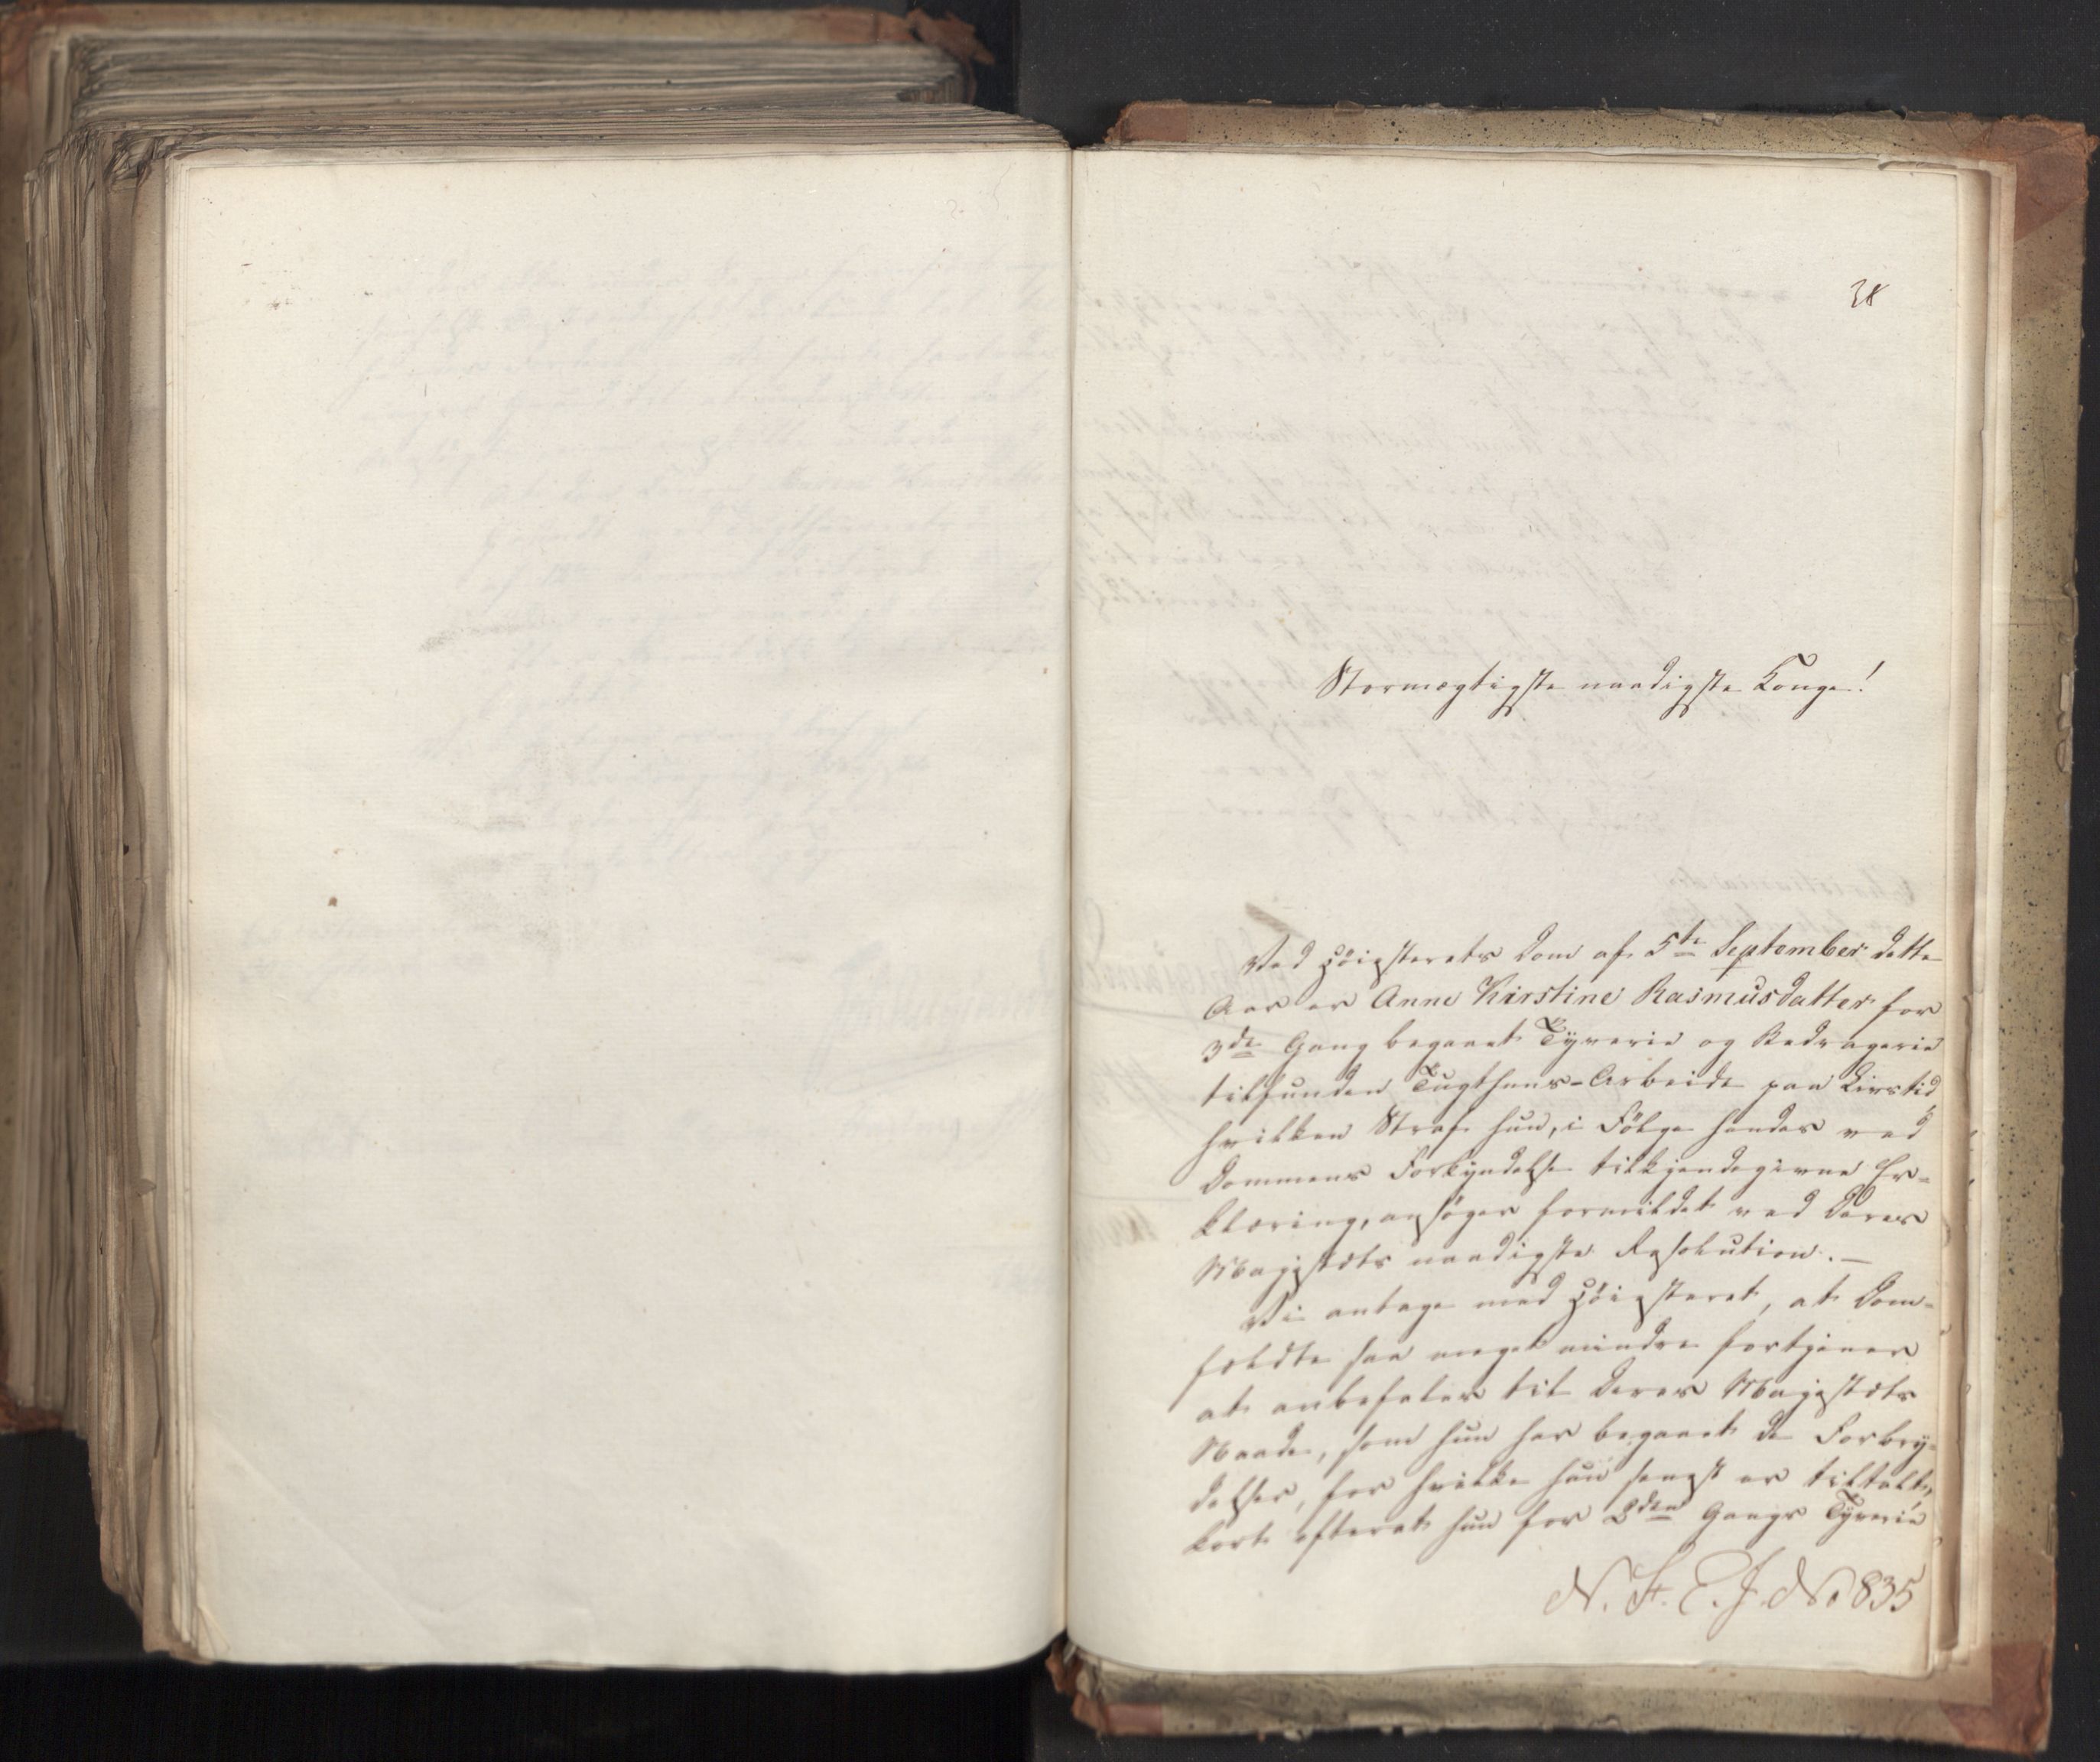 38
Stormægtigste naadigste Konge!
Ved Höiesterets Dom af 5te September dette
Aar er Anne Kirstine Rasmusdatter for
3de Gang begaaet Tyverie og Bedragerie
tilfunden Tugthuus-Arbeide paa Livstid,
hvilken Straf hun, i Fölge hendes ved
Dommens Forkyndelse tilkjendegivne Er-
klæring, ansøger formildet ved Deres
Majestæts naadigste Resolution. —
Vi antage med Höiesteret, at Dom-
fældte saa meget mindre fortjener
at anbefales til Deres Majestæts
Naade, som hun har begaaet de Forbry-
delser, for hvilke hun senest er tiltalt,
kort efterat hun for 2den Gangs Tyverie
N. S. E. J. No 835